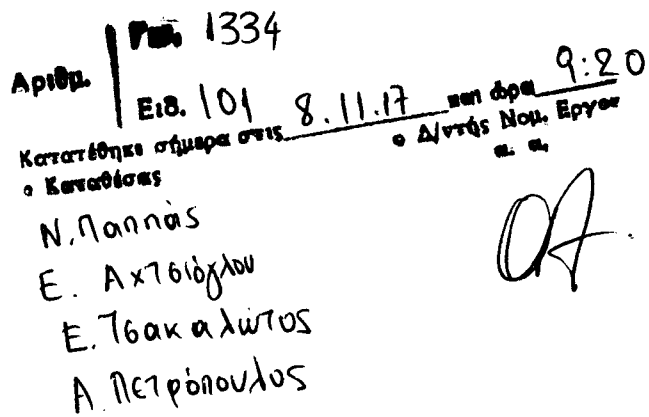 Αριθμ. Γεν. 1334
Ειδ. 101
Κατατέθηκε σήμερα στις 8.11.17 και ώρα 9:20
ο Καταθέσας ο Δ/ντής Νομ. Εργου
α. α.
Ν. Παππάς
Ε. Αχτσιόγλου
Ε. Τσακαλώτος
Α. Πετρόπουλος